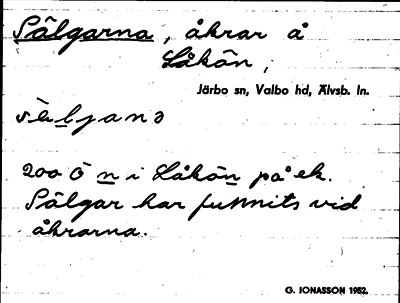 Sälgarna, åkrar å
Låkön,
Järbo sn, Valbo hd, Älvsb. ln.
sèljanə
200 Ö n i Låkön på ek.
Sälgar har funnits vid
åkrarna.
G. JONASSON 1952.